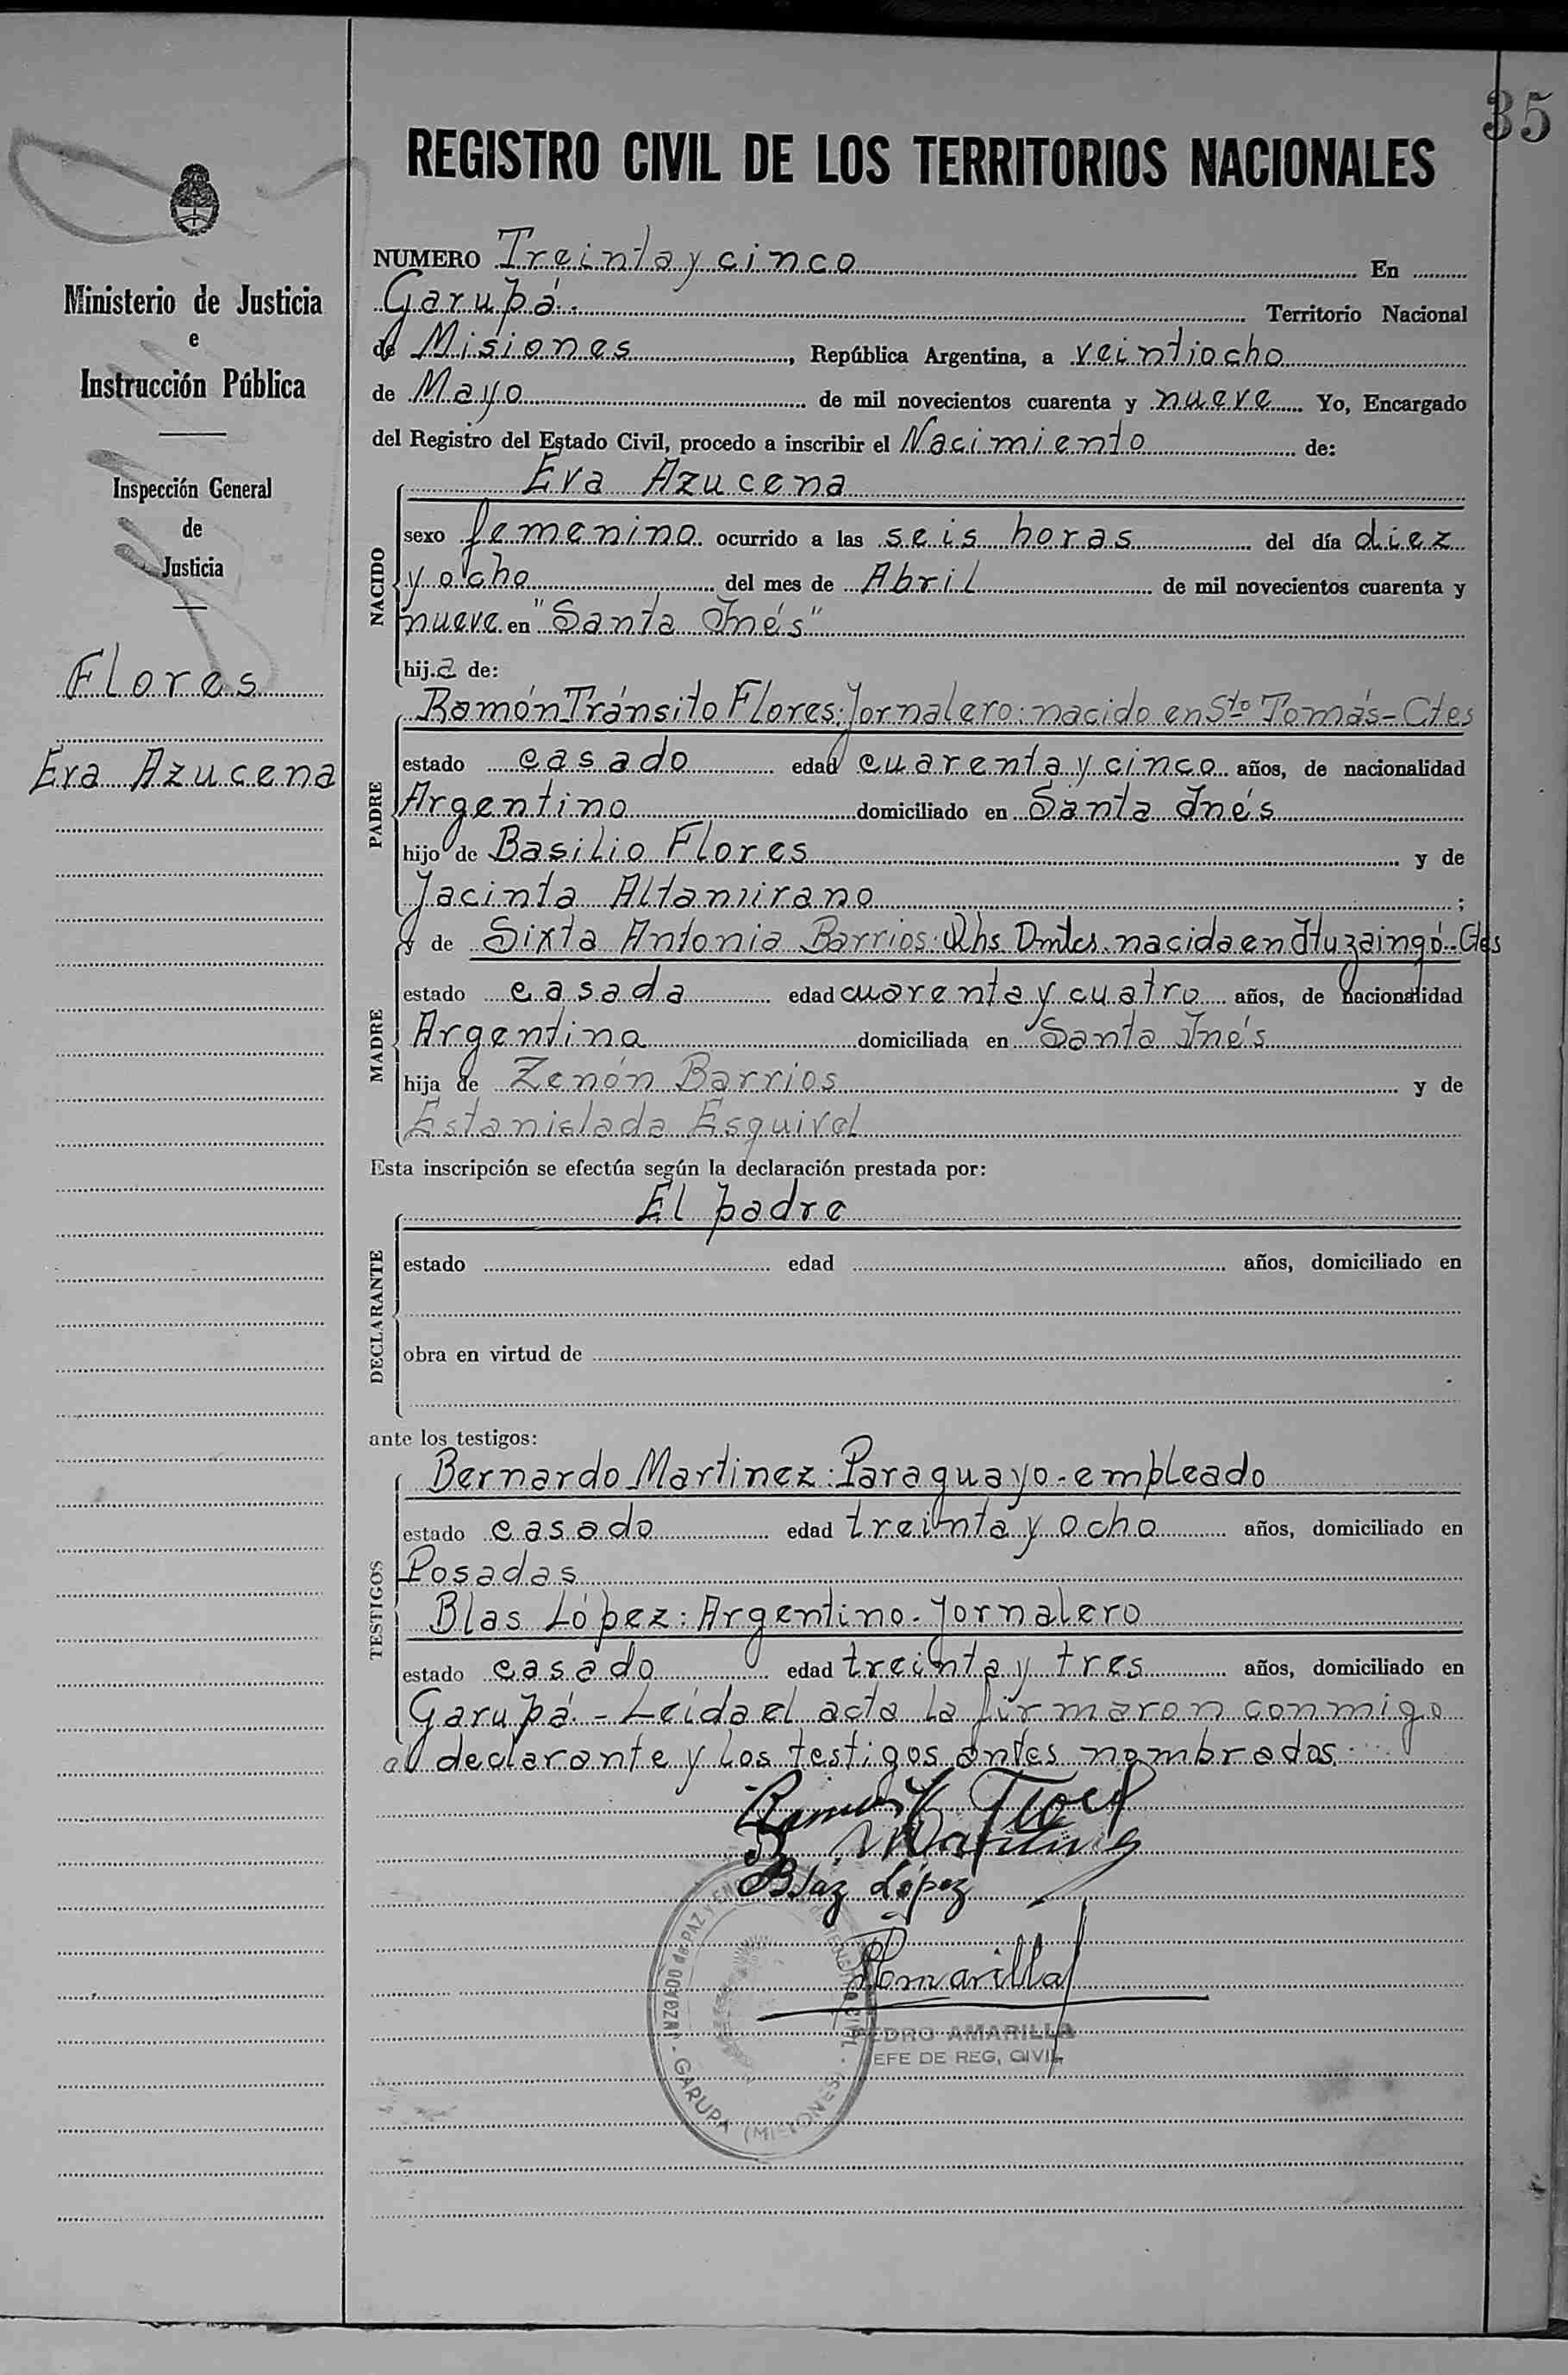 35
REGISTRO CIVIL DE LOS TERRITORIOS NACIONALES
Ministerio de Justicia
e
Instrucción Pública
Inspección General
de
Justicia
Flores
Eva Azucena
NUMERO Treinta y cinco En
Garupá. Territorio Nacional
de Misiones, República Argentina, a veintiocho
de Mayo de mil novecientos cuarenta y nueve Yo, Encargado
del Registro del Estado Civil, procedo a inscribir el Nacimiento de:
NACIDO
Eva Azucena
sexo femenino ocurrido a las seis horas del día diez
y ocho del mes de Abril de mil novecientos cuarenta y
nueve en "Santa Inés"
hija de:
PADRE
Ramón Tránsito Flores: Jornalero: nacido en Sto Tomás - Ctes
estado casado edad cuarenta y cinco años, de nacionalidad
Argentino domiciliado en Santa Inés
hijo de Basilio Flores y de
Jacinta Altamirano;
MADRE
y de Sixta Antonia Barrios: Qhs. Dmtcs. nacida en Ituzaingó - Ctes
estado casada edad cuarenta y cuatro años, de nacionalidad
Argentina domiciliada en Santa Inés
hija de Zenón Barrios y de
Estanislada Esquivel
Esta inscripción se efectúa según la declaración prestada por:
DECLARANTE
El padre
estado edad años, domiciliado en
obra en virtud de
ante los testigos:
TESTIGOS
Bernardo Martinez: Paraguayo - empleado
estado casado edad treinta y ocho años, domiciliado en
Posadas
Blas López: Argentino - Jornalero
estado casado edad treinta y tres años, domiciliado en
Garupá. - Leída el acta la firmaron conmigo
el declarante y los testigos antes nombrados.
Blaz López
PAmarilla
PEDRO AMARILLA
JEFE DE REG, CIVIL
JUZGADO de PAZ y
GARUPA (MISIONES)